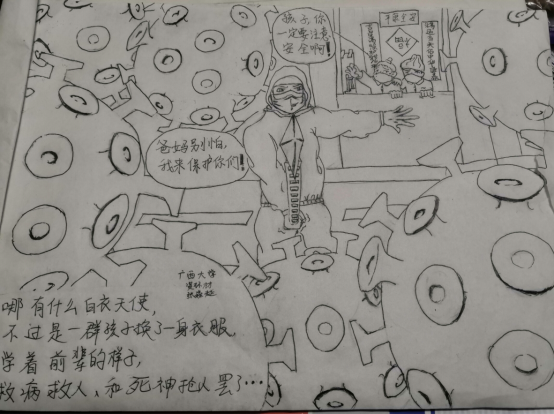 孩子,你
一定要注意
安全啊!
爸妈别怕,
我来保护你们!
广西大学
哪有什么白衣天使,
不过是一群孩子换了一身衣服,
学着前辈的样子,
救病救人、和死神抢人罢了…